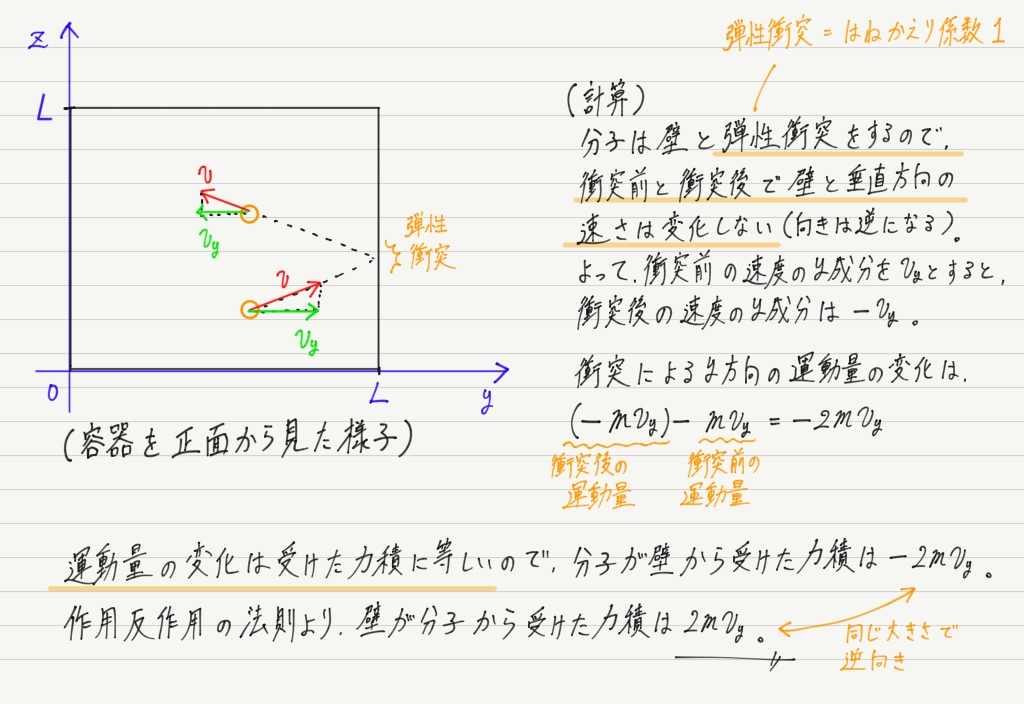 z
L
v
v_y
弾性
衝突
v
v_y
0
L
y
(容器を正面から見た様子)
弾性衝突=はねかえり係数1
(計算)
分子は壁と弾性衝突をするので,
衝突前と衝突後で壁と垂直方向の
速さは変化しない(向きは逆になる)。
よって,衝突前の速度のy成分をv_yとすると,
衝突後の速度のy成分は-v_y。
衝突によるy方向の運動量の変化は,
(-mv_y)-mv_y=-2mv_y
衝突後の 衝突前の
運動量 運動量
運動量の変化は受けた力積に等しいので,分子が壁から受けた力積は-2mv_y。
作用反作用の法則より,壁が分子から受けた力積は2mv_y。
同じ大きさで
逆向き